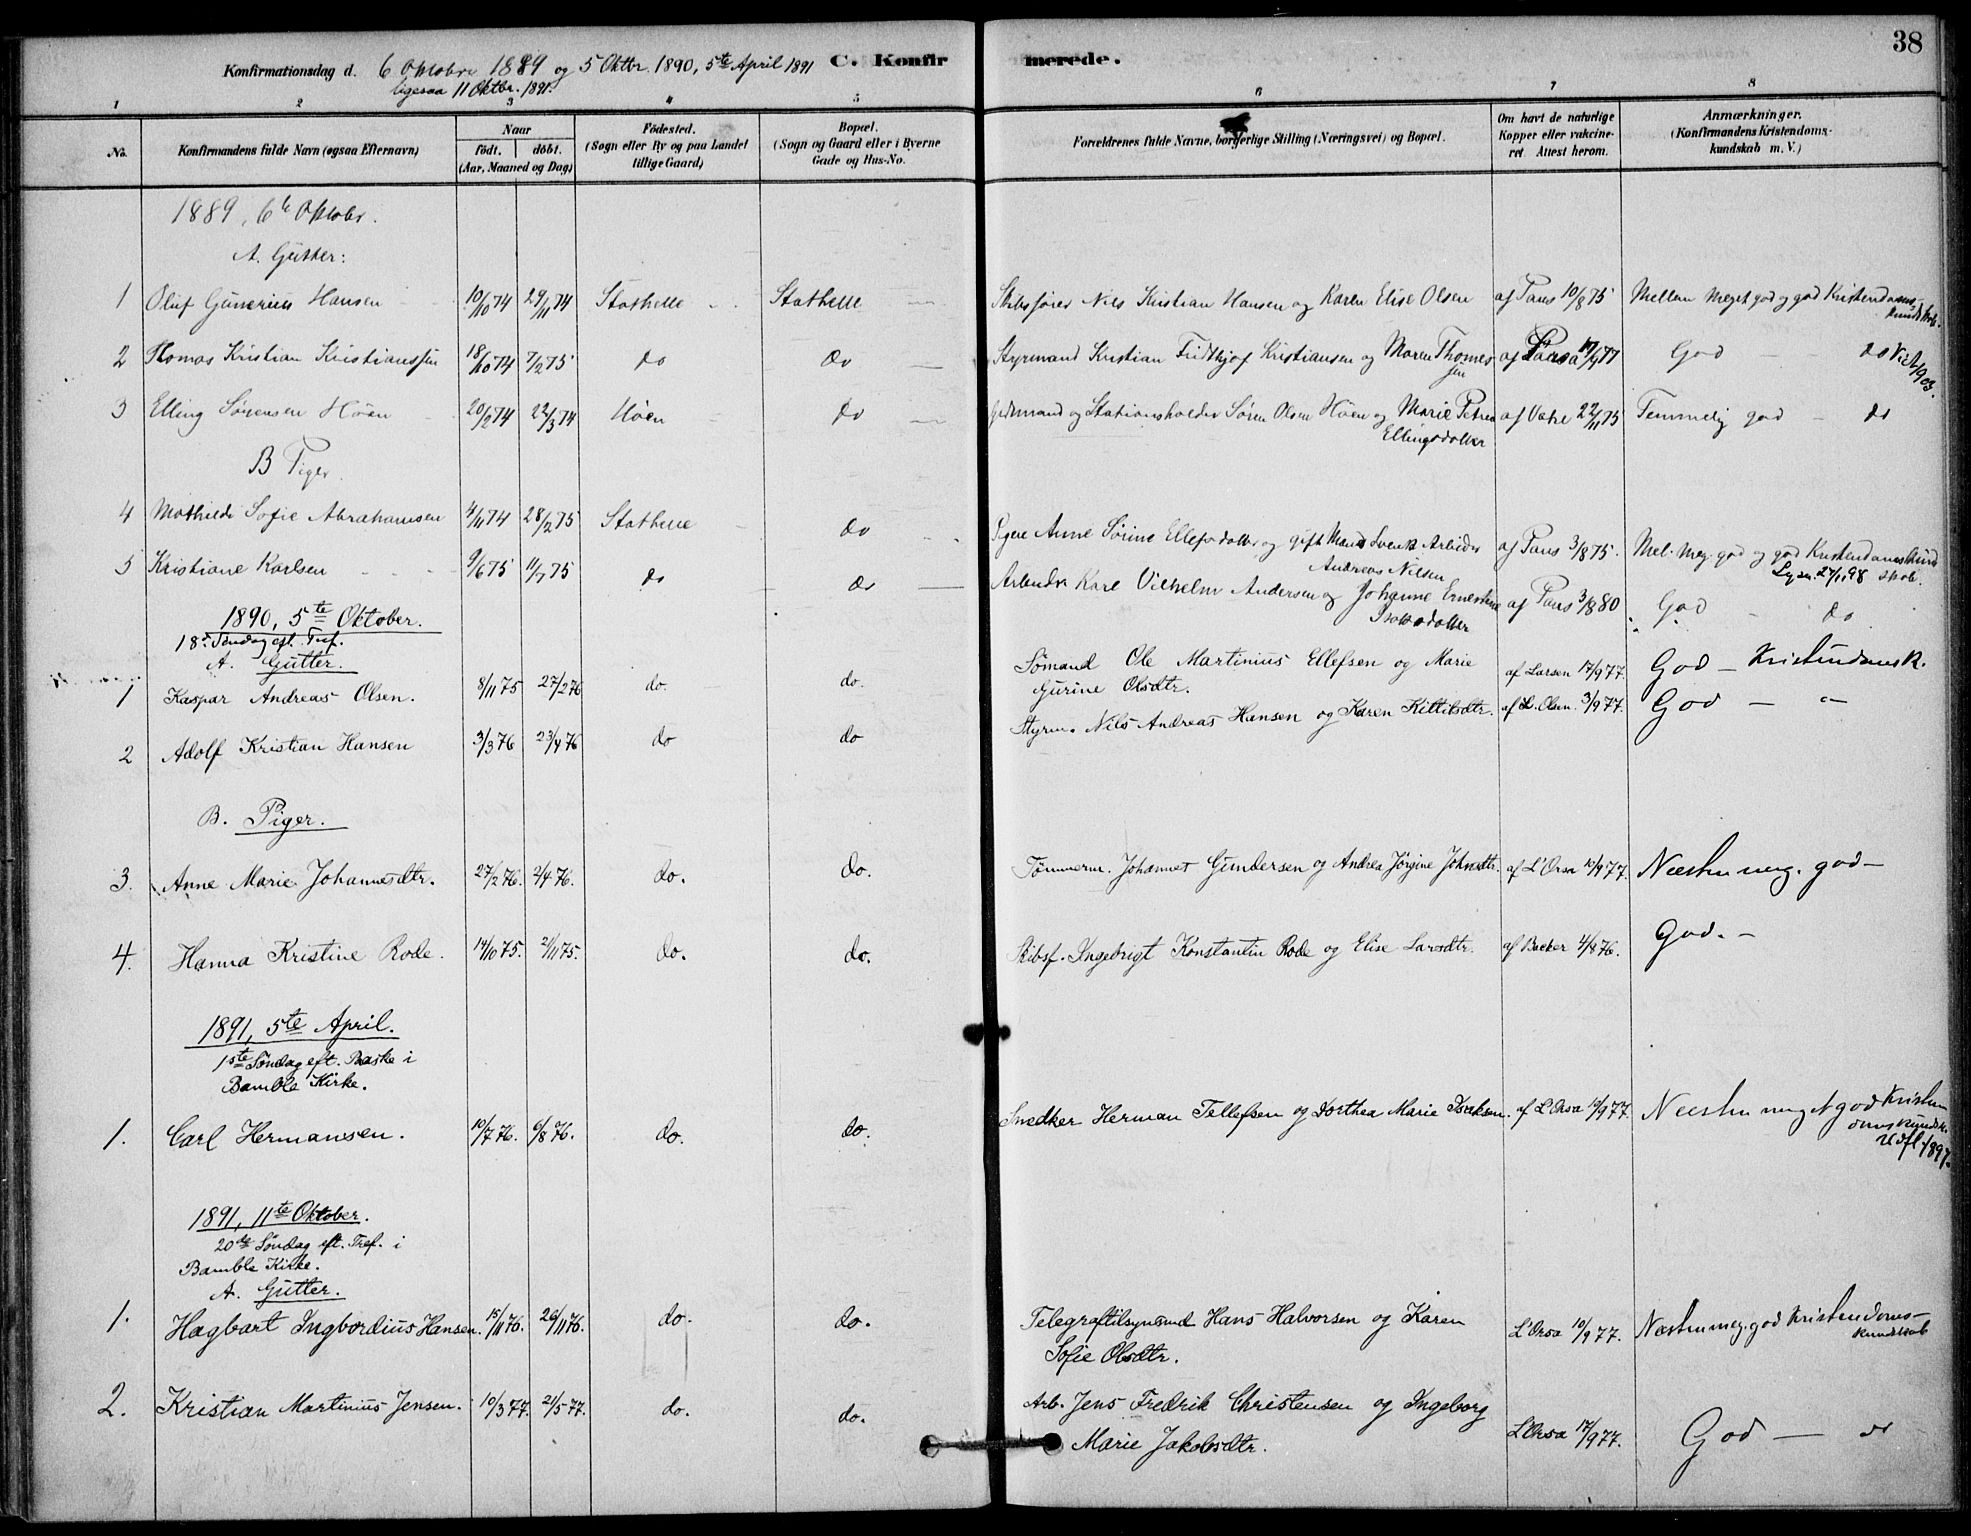 38
Konfirmationsdag d. 6 Oktober 1889 og 5 Oktbr. 1890, 5te April 1891 C. Konfirmerede.
ligesaa 11 Oktbr. 1891.
1 2 3 4 5 6 7 8
No. Konfirmandens fulde Navn (ogsaa Efternavn) Naar født. døbt. (Aar, Maaned og Dag) Fødested. (Sogn eller By og paa Landet tillige Gaard) Bopæl. (Sogn og Gaard eller i Byerne Gade og Hus-No. Forældrenes fulde Navne, borgerlige Stilling (Næringsvei) og Bopæl. Om havt de naturlige Kopper eller vakcineret. Attest herom. Anmærkninger. (Konfirmandens Kristendomskundskab m. V.)
1889, 6te Oktober.
A. Gutter:
1 Oluf Gunerius Hansen 10/10 74 29/11 74 Stathelle Stathelle Skibsfører Nils Kristian Hansen og Karen Elise Olsen af Paus 10/8 75 Mellem meget god og god Kristendomskundskab.
2 Thomas Kristian Kristiansen 18/10 74 7/2 75 do do Styrmand Kristian Fridthjof Kristiansen og Maren Thomessen 17/9 77 God — do
3 Elling Sørensen Høen 20/2 74 22/3 74 Høen do og Stationsholder Søren Olsen Høen og Marie Petrea Ellingsdatter 22/11 75 Temmelig god — do
B Piger
4 Mathilde Sofie Abrahamsen 4/11 74 28/2 75 Stathelle do Pigen Anne Sørine Ellefsdatter og gift Mand Svensk Arbeider Andreas Nilsen af Paus 3/8 75. Mel. meg. god og god Kristendomskundskab.
5 Kristiane Karlsen 9/6 75 11/7 75 do do Arbeider Karl Vilhelm Andersen og Johanne Ernestine Isaksdatter af Paus 3/8 80 God — do
1890, 5te Oktober.
18de Søndag eft. Tref.
A. Gutter.
1 Kaspar Andreas Olsen. 8/11 75 27/2 76 do. do. Sømand Ole Martinius Ellefsen og Marie Gurine Olsdtr. af Larsen 17/9 77. God — Kristendomsk.
2 Adolf Kristian Hansen 3/3 76 23/4 76 do do Styrm. Nils Andreas Hansen og Karen Kittilsdtr. af L. Olsen. 3/9 77. God — "
B. Piger.
3. Anne Marie Johannesdtr. 27/2 76. 2/4 76. do. do. Tømmerm. Johannes Gundersen og Andrea Jørgine Johnsdtr. af L'Orsa 10/9 77. Næsten meg. god —
4. Hanna Kristine Rode. 14/10 75. 21/11 75. do. do. Skibsf. Ingebrigt Konstantin Rode og Elise Larsdtr. af Backer 4/8 76. God. —
1891, 5te April.
1ste Søndag eft. Paaske i
Bamble Kirke.
1. Carl Hermansen. 10/7 76. 6/8 76. do. do. Snedker Herman Tellefsen og Dorthea Marie Isaksen. af L'Orsa 10/9 77. Næsten meget god Kristendomskundsk. Udfl. 1897.
1891, 11te Oktober.
20de Søndag eft. Tref. i
Bamble Kirke.
A. Gutter.
1. Hagbart Ingbordius Hansen. 15/11 76. 26/11 76. do. do. Telegraftilsynsmd Hans Halvorsen og Karen Sofie Olsdtr. L'Orsa 10/9 77. Næsten meg. god Kristendomskundskab
2. Kristian Martinius Jensen. 10/3 77. 21/5 77. do. do. Arb. Jens Fredrik Christensen og Ingeborg Marie Jakobsdtr. L'Orsa 17/9 77. God — do